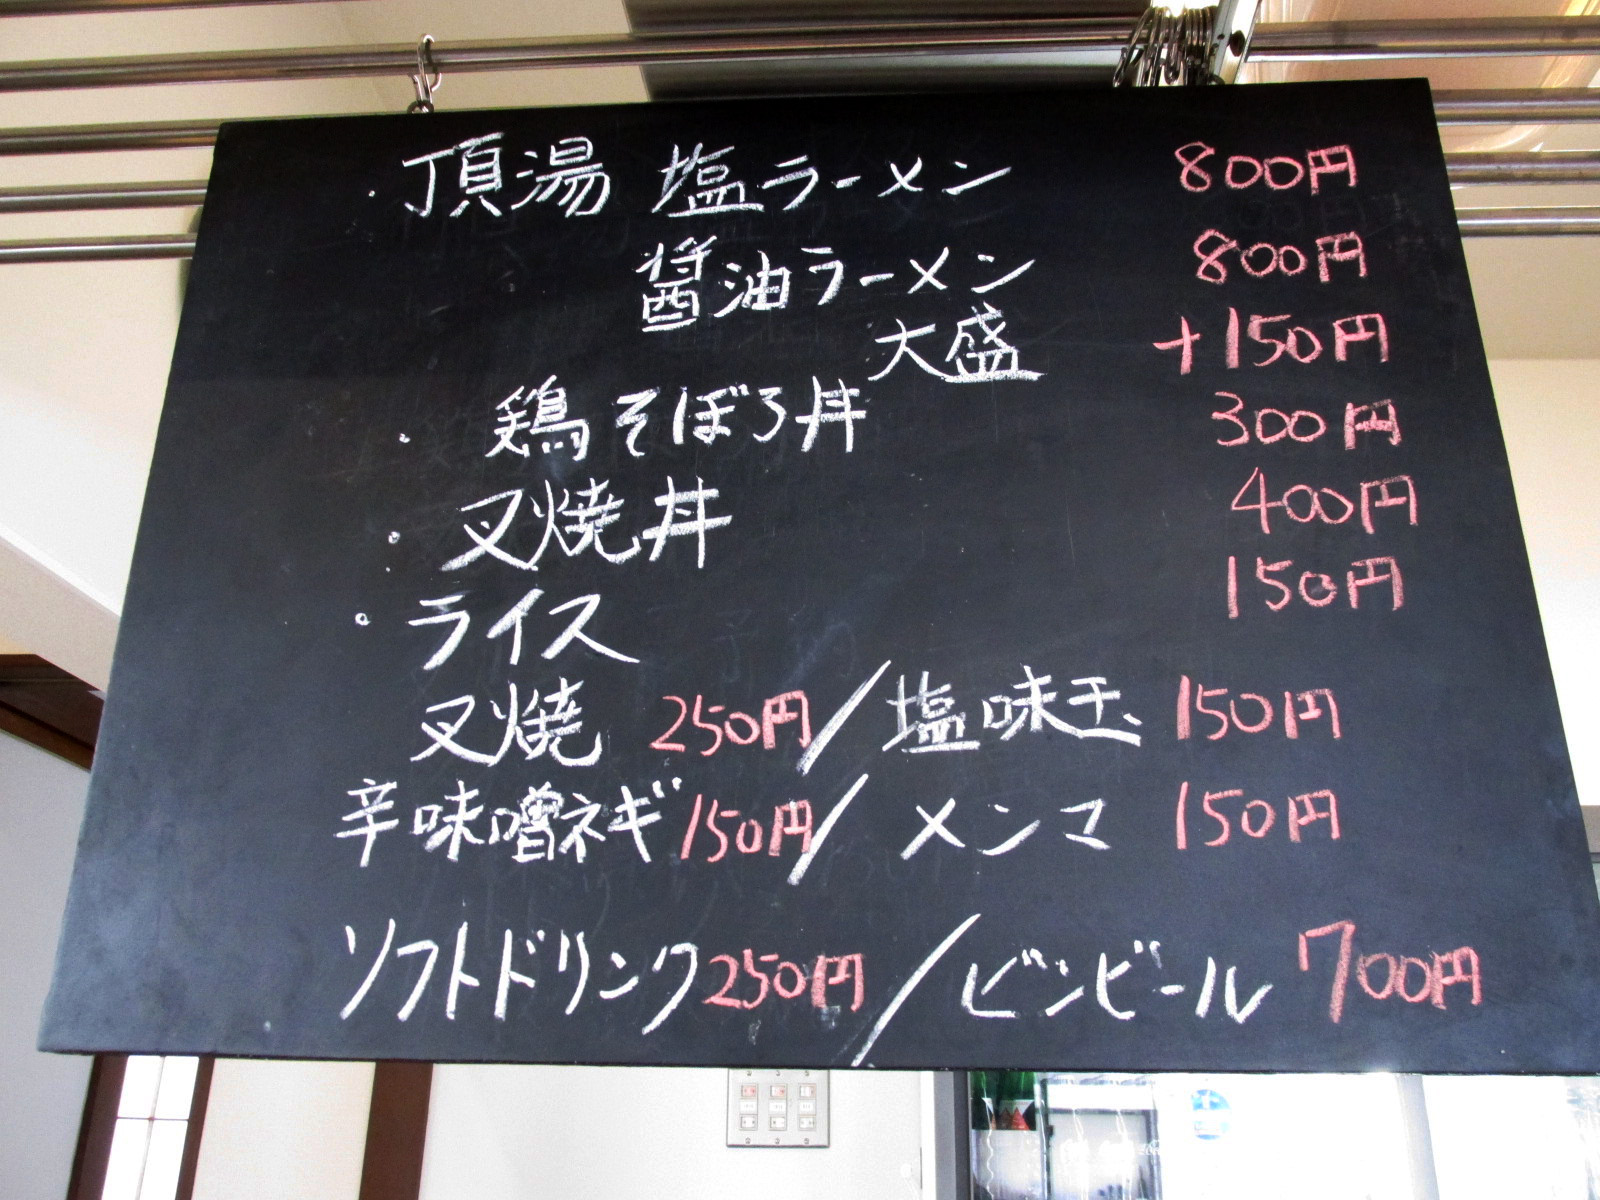 ・頂湯 塩ラーメン 800円
醤油ラーメン 800円
大盛 +150円
・鶏そぼろ丼 300円
・叉焼丼 400円
・ライス 150円
叉焼 250円/塩味玉 150円
辛味噌ネギ 150円/メンマ 150円
ソフトドリンク 250円/ビンビール 700円